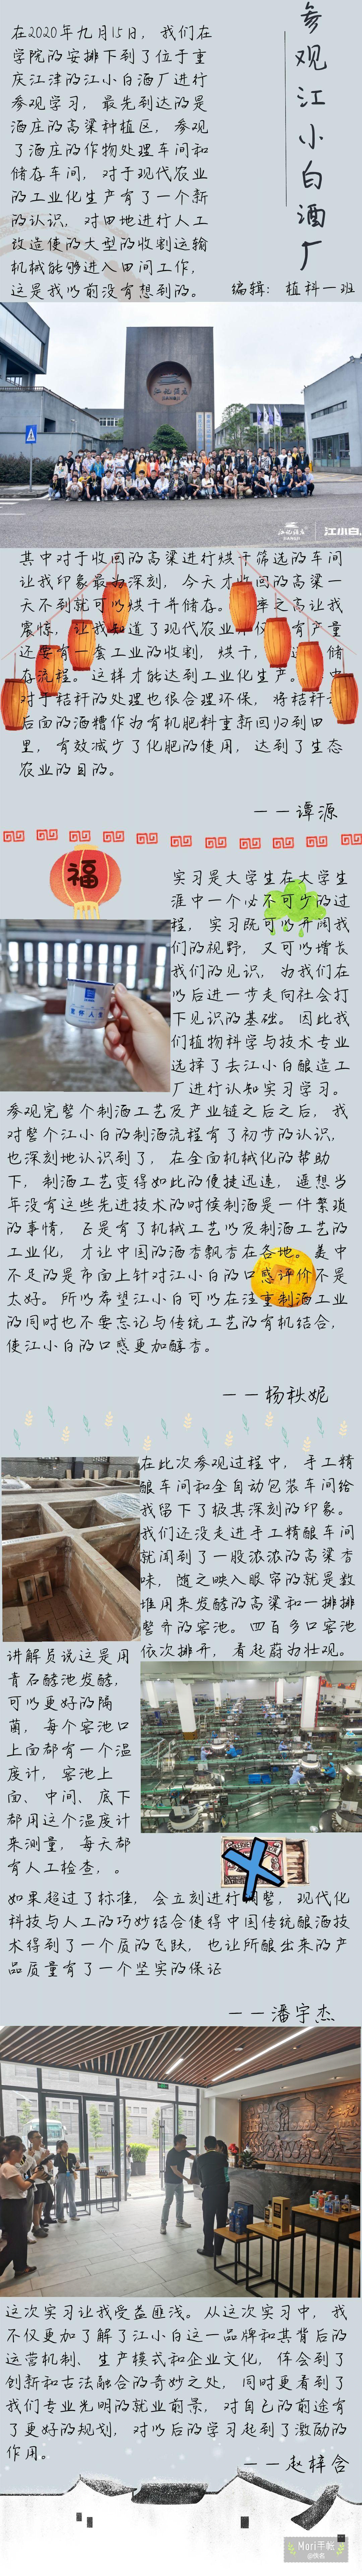 参观江小白酒厂
在2020年九月15日，我们在
学院的安排下到了位于重
庆江津的江小白酒厂进行
参观学习，最先到达的是
酒庄的高粱种植区，参观
了酒庄的作物处理车间和
储存车间，对于现代农业
的工业化生产有了一个新
的认识，对田地进行人工
改造使的大型的收割运输
机械能够进入田间工作，
这是我以前没有想到的。
编辑：植科一班
江小白
其中对于收回的高粱进行烘干筛选的车间
让我印象最为深刻，今天才收回的高粱一
天不到就可以烘干并储存。
率之高让我
震惊，让我知道了现代农业
有产量
还要有一套工业的收割，烘干，
储
存流程。这样才能达到工业化生产。
对于秸秆的处理也很合理环保，将秸秆
后面的酒糟作为有机肥料重新回归到田
里，有效减少了化肥的使用，达到了生态
农业的目的。
——谭源
福
实习是大学生在大学生
涯中一个必不可少的过
程，实习既可以开阔我
们的视野，又可以增长
我们的见识，为我们在
以后进一步走向社会打
下见识的基础。因此我
们植物科学与技术专业
选择了去江小白酿造工
厂进行认知实习学习。
参观完整个制酒工艺及产业链之后之后，我
对整个江小白的制酒流程有了初步的认识，
也深刻地认识到了，在全面机械化的帮助
下，制酒工艺变得如此的便捷迅速，遥想当
年没有这些先进技术的时候制酒是一件繁琐
的事情，正是有了机械工艺以及制酒工艺的
工业化，才让中国的酒香飘香在各地。美中
不足的是市面上针对江小白的口感评价不是
太好。所以希望江小白可以在注重制酒工业
的同时也不要忘记与传统工艺的有机结合，
使江小白的口感更加醇香。
——杨轶妮
在此次参观过程中，手工精
酿车间和全自动包装车间给
我留下了极其深刻的印象。
我们还没走进手工精酿车间
就闻到了一股浓浓的高粱香
味，随之映入眼帘的就是数
堆用来发酵的高粱和一排排
整齐的窖池。四百多口窖池
依次排开，看起蔚为壮观。
讲解员说这是用
青石酵池发酵，
可以更好的隔
菌，每个窖池口
上面都有一个温
度计，窖池上
面、中间、底下
都用这个温度计
来测量，每天都
有人工检查，。
如果超过了标准，会立刻进行调整，现代化
科技与人工的巧妙结合使得中国传统酿酒技
术得到了一个质的飞跃，也让所酿出来的产
品质量有了一个坚实的保证
——潘宇杰
这次实习让我受益匪浅。从这次实习中，我
不仅更加了解了江小白这一品牌和其背后的
运营机制、生产模式和企业文化，体会到了
创新和古法融合的奇妙之处，同时更看到了
我们专业光明的就业前景，对自己的前途有
了更好的规划，对以后的学习起到了激励的
作用。
——赵梓含
Mori手帐